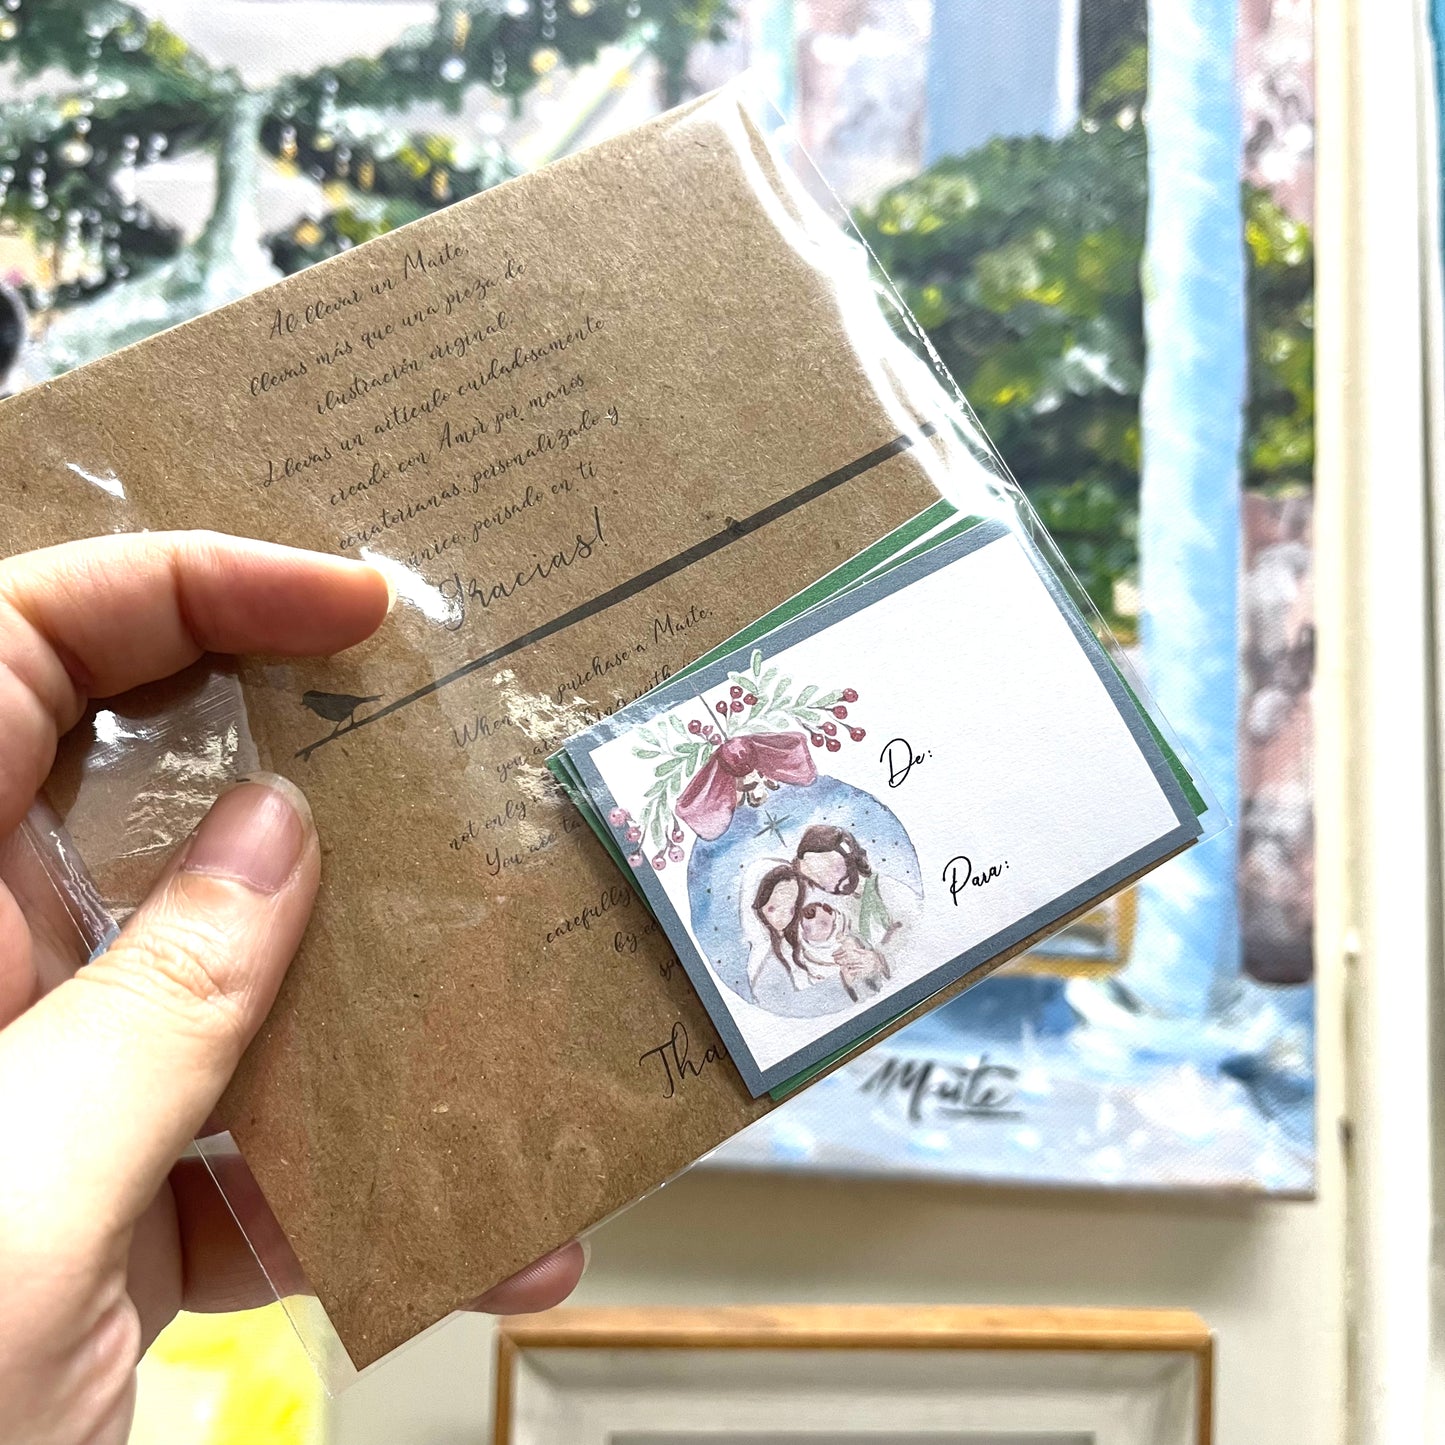 Al llevar un Maite,
llevas más que una pieza de
ilustración original.
Llevas un artículo cuidadosamente
creado con Amor por manos
ecuatorianas, personalizado y
único, pensado en ti
Gracias!
When purchase a Maite,
you are
not only
You are
carefully
by
De:
Para:
Maite